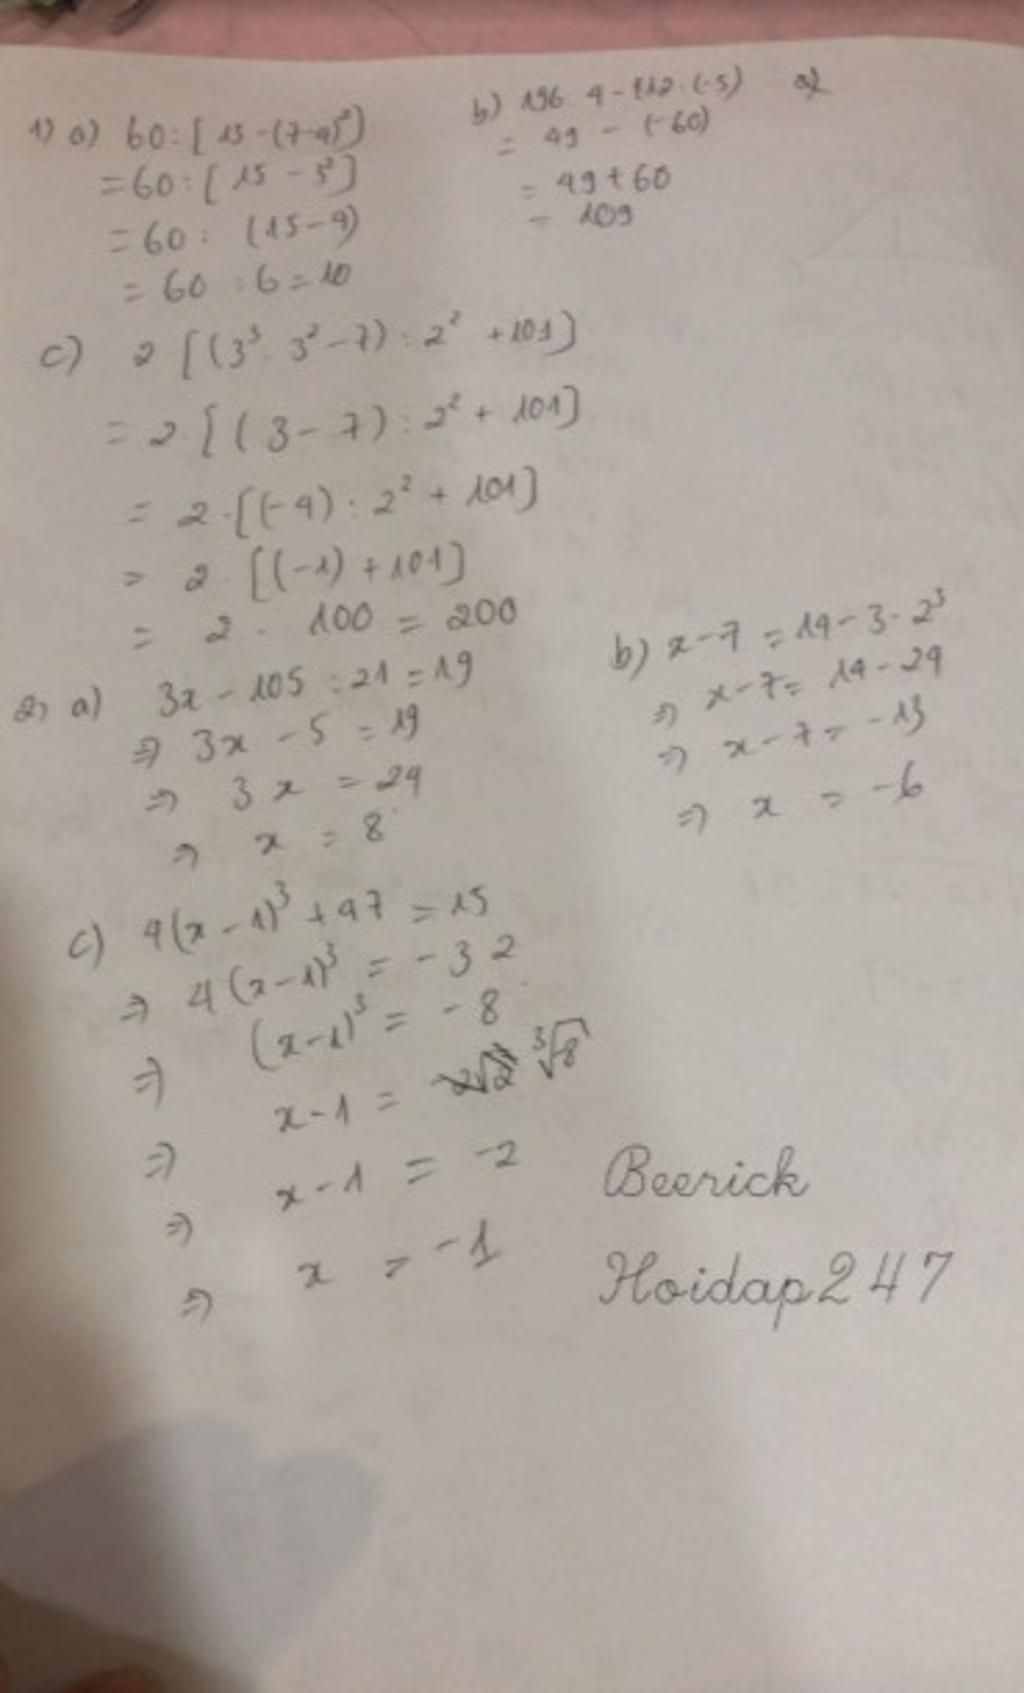 1) a) 60 : [ 15 - (7-4)²]
= 60 : [ 15 - 3²]
= 60 : (15-9)
= 60 : 6 = 10
b) 196 : 4 - 12 . (-5)
= 49 - (-60)
= 49 + 60
= 109
c) 2 [(3³ : 3² - 7) : 2² + 101]
= 2 . [( 3 - 7) : 2² + 101]
= 2 . [(-4) : 2² + 101]
= 2 . [(-1) + 101]
= 2 . 100 = 200
2) a) 3x - 105 : 21 = 19
=> 3x - 5 = 19
=> 3x = 24
=> x = 8
b) x - 7 = 14 - 3 . 2³
=> x - 7 = 14 - 24
=> x - 7 = -13
=> x = -6
c) 4(x - 1)³ + 47 = 15
=> 4(x-1)³ = -32
=> (x-1)³ = -8
=> x-1 = ³√-8
=> x-1 = -2
=> x = -1
Beerick
Hoidap247